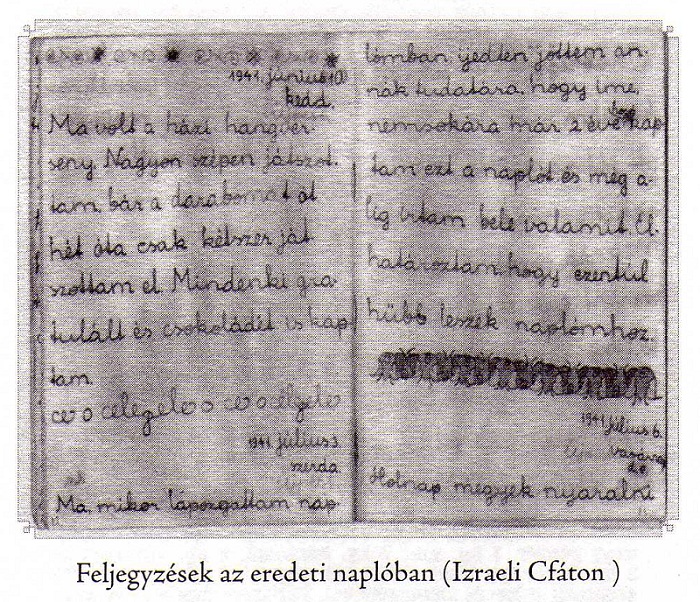 1941. június 10.
kedd.
Ma volt a házi hangver-
seny. Nagyon szépen játszot-
tam, bár a darabomat öt
hét óta csak kétszer ját
szottam el. Mindenki gra-
tulált és csokoládét is kap
tam.
1941 július 3.
szerda.
Ma, mikor lapozgattam nap-
lómban ijedten jöttem an-
nak tudatára, hogy íme,
nemsokára már 2 éve hogy kap-
tam ezt a naplót és még a-
lig írtam bele valamit. El-
határoztam, hogy ezentúl
hűbb leszek naplómhoz.
1941 július 6.
vasárnap
Holnap megyek nyaralni
Feljegyzések az eredeti naplóban (Izraeli Cfáton )